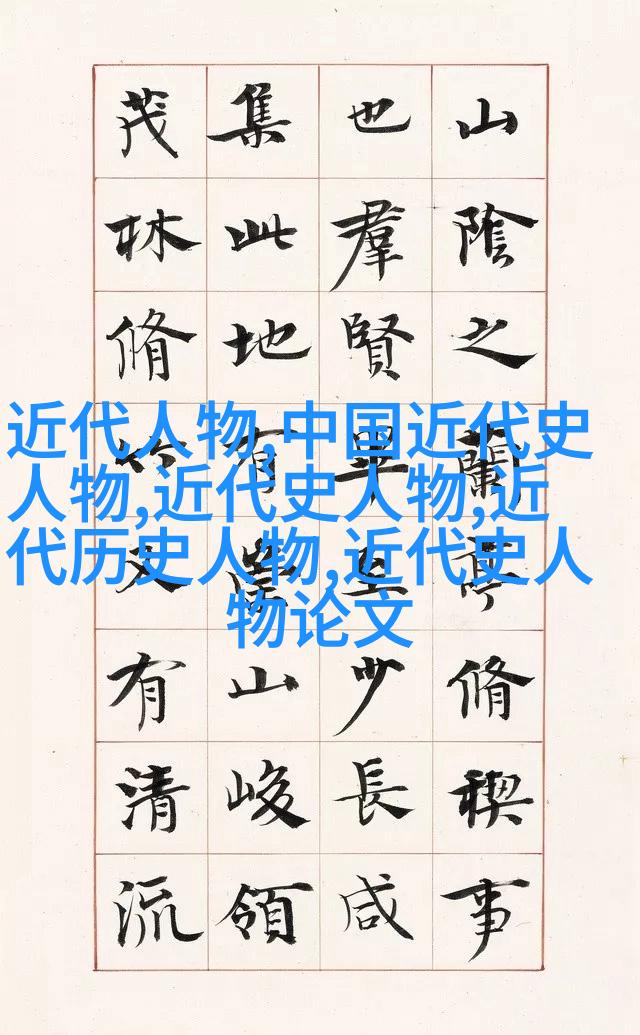 山陰之蘭亭脩禊事
也羣賢畢至少長咸
集此地有崇山峻領
茂林脩竹又有清流
近代人物,中国近代史
人物,近代史人物,近
代历史人物,近代史人
物论文